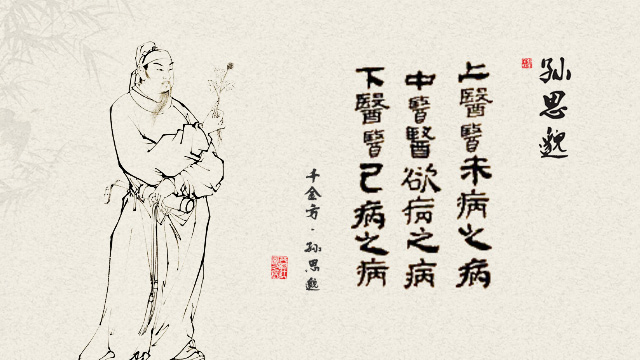 孙思邈
上醫醫未病之病
中醫醫欲病之病
下醫醫已病之病
千金方·孙思邈